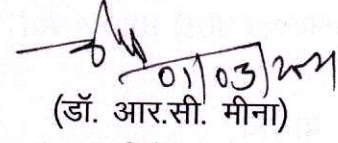 01/03/2021
(डॉ. आर.सी. मीना)